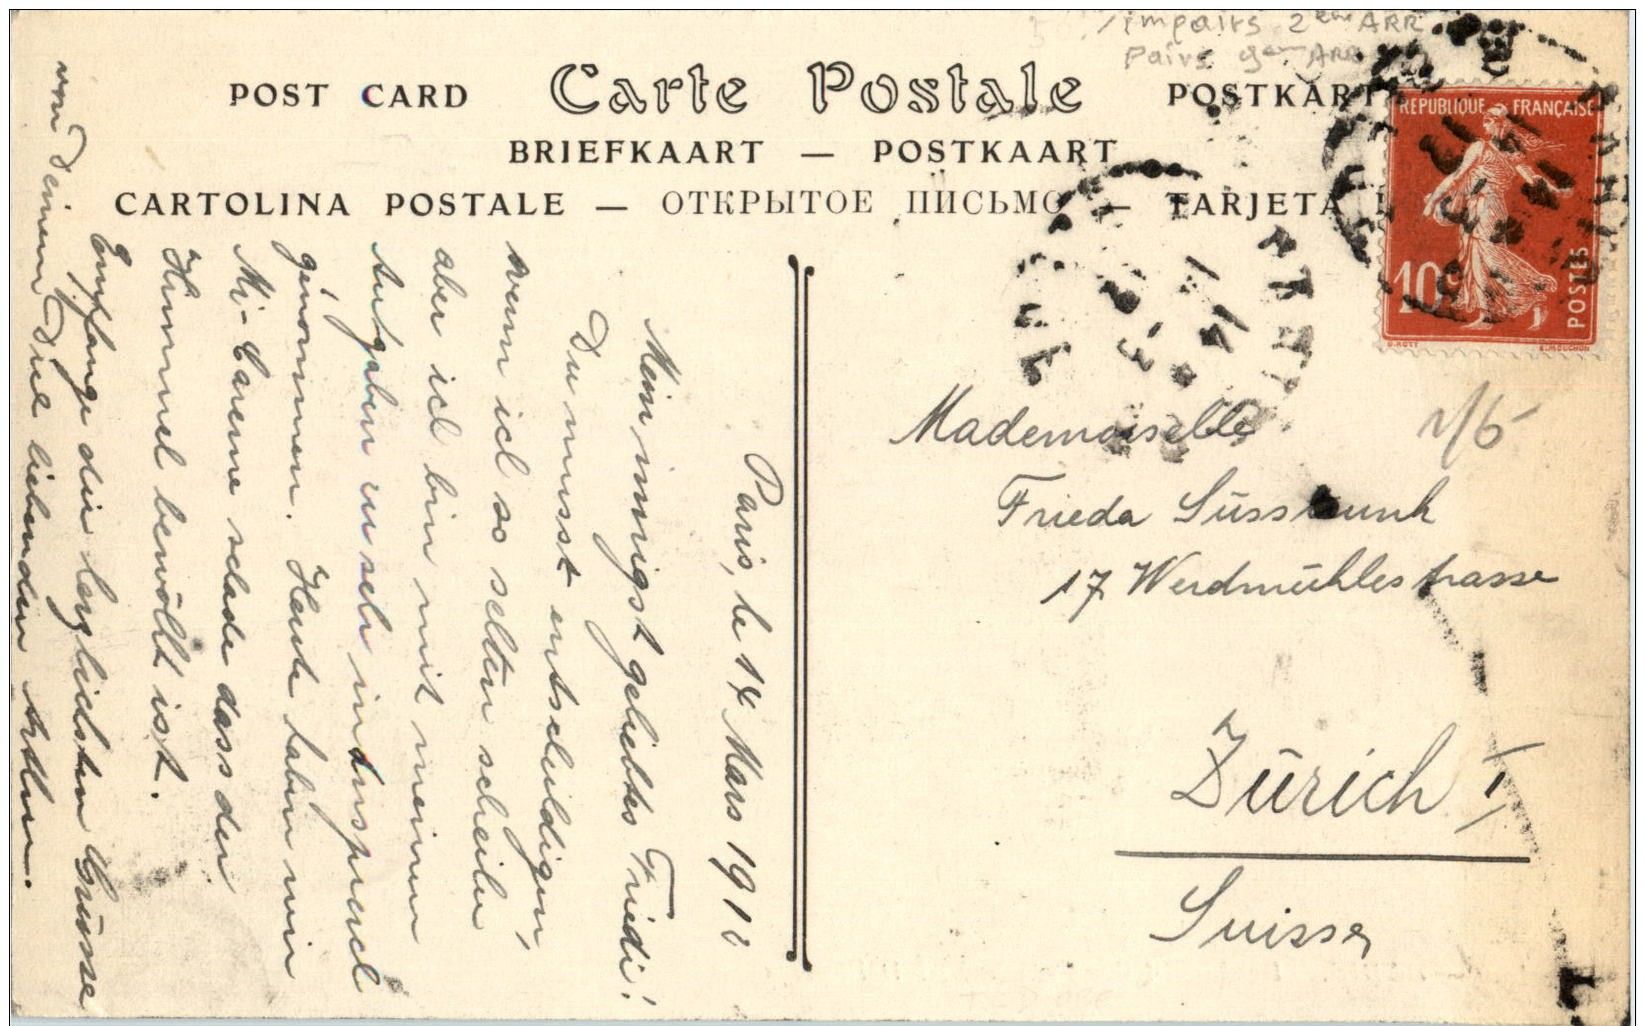 impairs 2ème ARR
Pairs 9ème ARR
POST CARD Carte Postale POSTKARTE
BRIEFKAART — POSTKAART
CARTOLINA POSTALE — ОТКРЫТОЕ ПИСЬМО — TARJETA
REPUBLIQUE FRANÇAISE
10c
POSTES
O. ROTY
E. MOUCHON
Paris, le 14 Mars 1912
Mein innigst geliebtes Friedi!
Du musst entschuldigen,
wenn ich so selten scheibe
aber ich bin mit meinen
Aufgaben zu sehr in Anspruch
genommen. Heute haben wir
Mi-Carême schade dass der
Himmel bewölkt ist.
Empfange die herzlichsten Grüsse
von Deinem Dich liebenden
Mademoiselle
Frieda
17 Werdmühlestrasse
Zürich I
Suisse